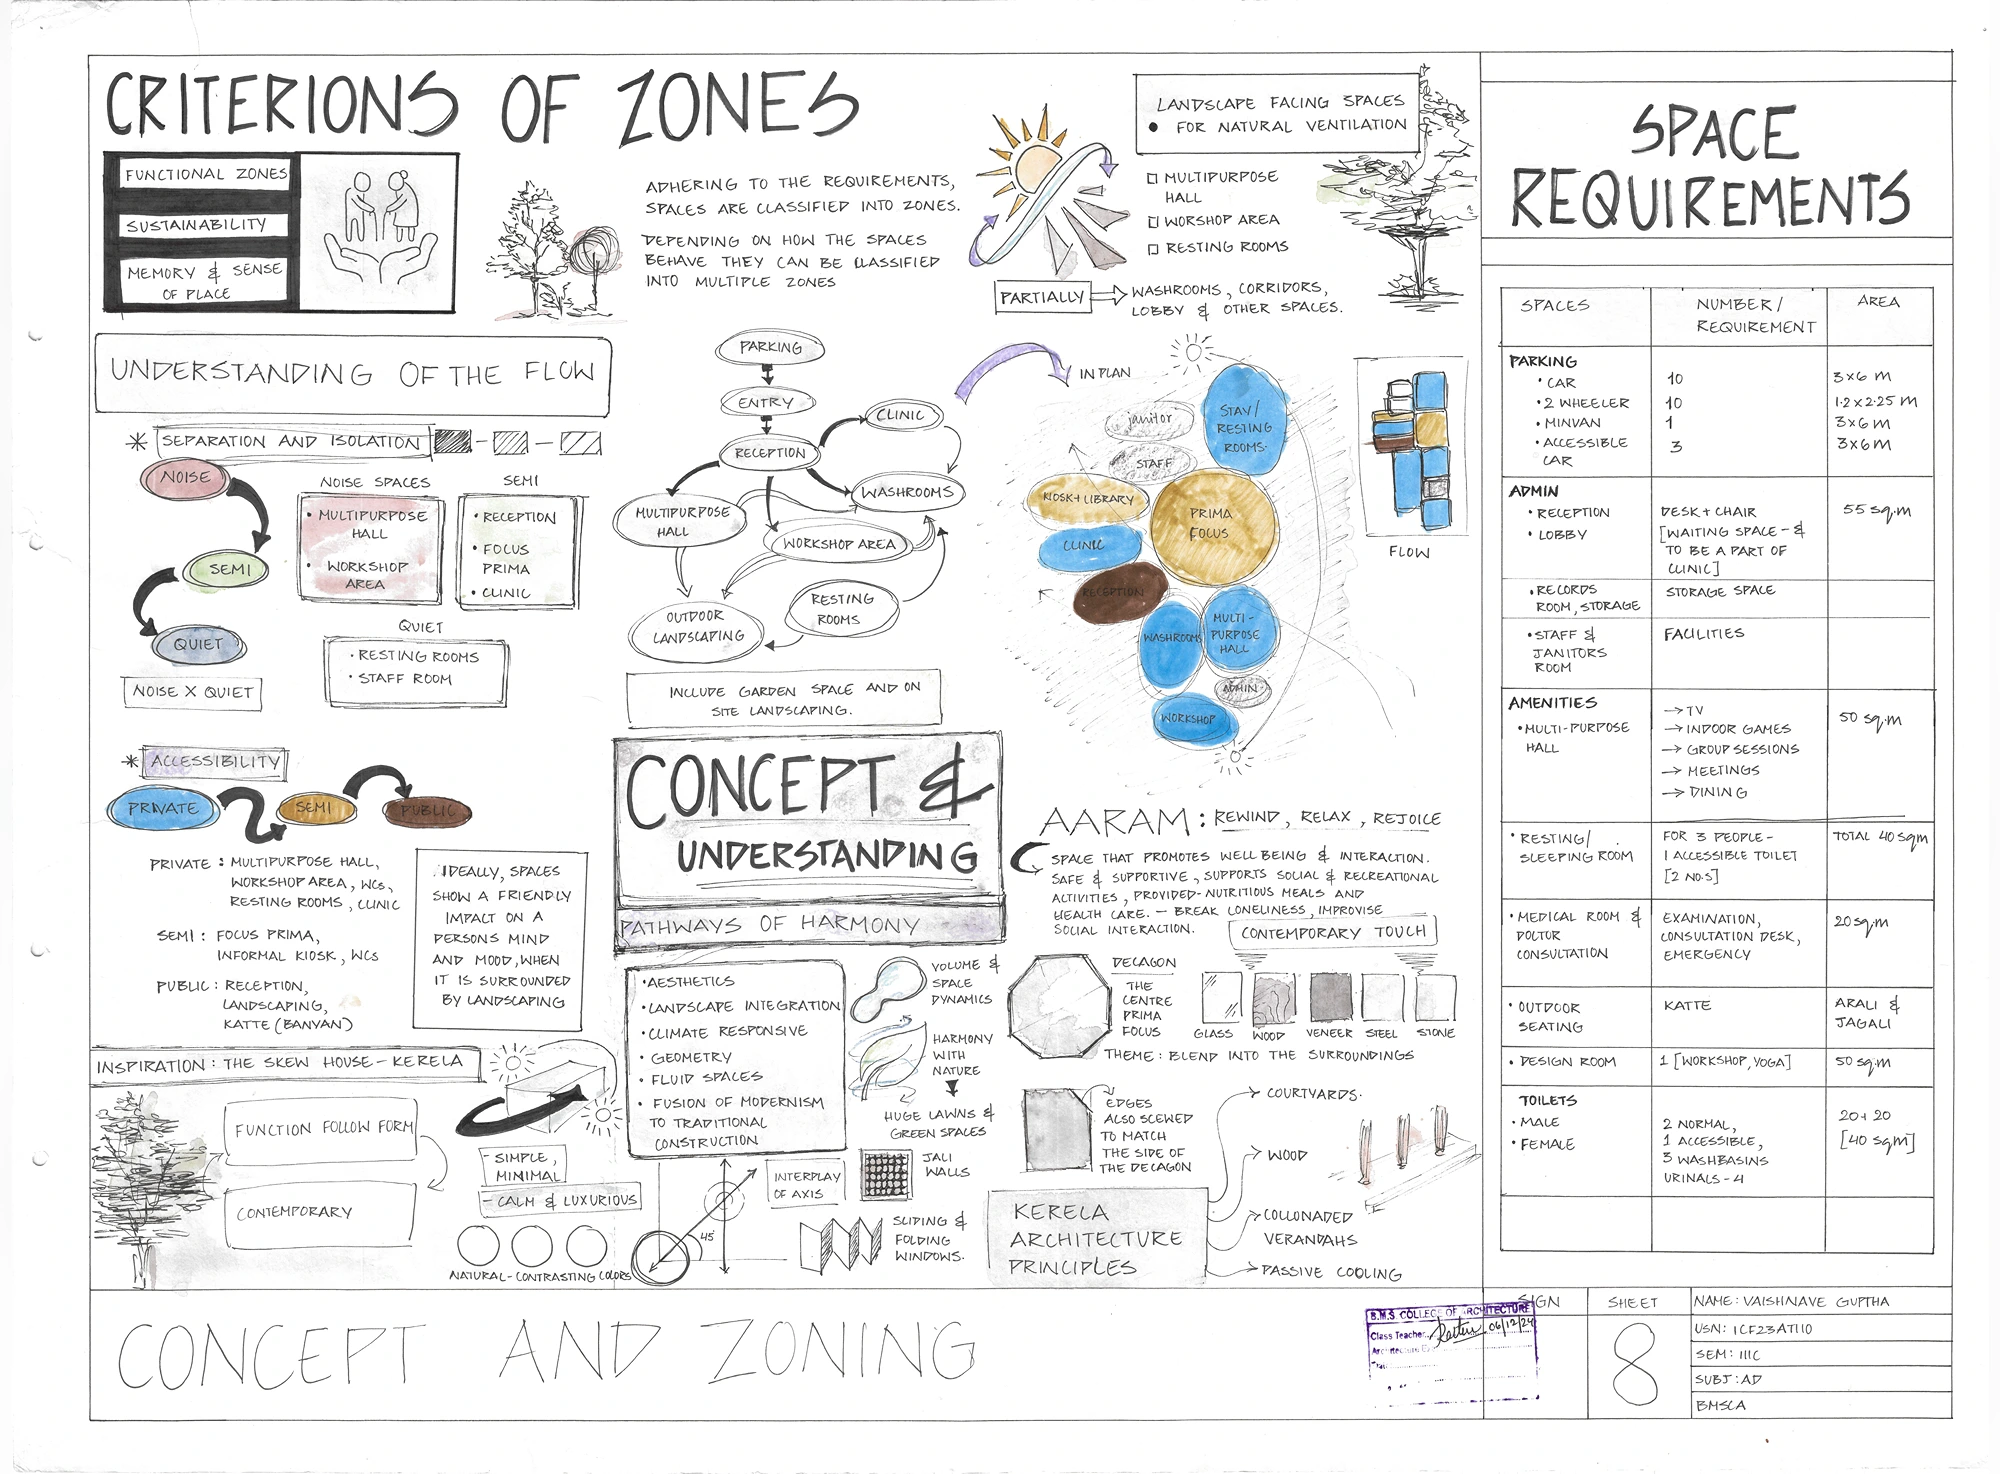 CRITERIONS OF ZONES
FUNCTIONAL ZONES
SUSTAINABILITY
MEMORY & SENSE
OF PLACE
ADHERING TO THE REQUIREMENTS,
SPACES ARE CLASSIFIED INTO ZONES.
DEPENDING ON HOW THE SPACES
BEHAVE THEY CAN BE CLASSIFIED
INTO MULTIPLE ZONES
LANDSCAPE FACING SPACES
• FOR NATURAL VENTILATION
MULTIPURPOSE
HALL
WORSHOP AREA
RESTING ROOMS
PARTIALLY
WASHROOMS, CORRIDORS,
LOBBY & OTHER SPACES.
UNDERSTANDING OF THE FLOW
* SEPARATION AND ISOLATION
NOISE
SEMI
QUIET
NOISE X QUIET
NOISE SPACES
• MULTIPURPOSE
HALL
• WORKSHOP
AREA
SEMI
• RECEPTION
• FOCUS
PRIMA
• CLINIC
QUIET
• RESTING ROOMS
• STAFF ROOM
PARKING
ENTRY
CLINIC
RECEPTION
WASHROOMS
MULTIPURPOSE
HALL
WORKSHOP AREA
RESTING
ROOMS
OUTDOOR
LANDSCAPING
INCLUDE GARDEN SPACE AND ON
SITE LANDSCAPING.
IN PLAN
janitor
STAY/
RESTING
ROOMS.
STAFF
KIOSK + LIBRARY
PRIMA
FOCUS
CLINIC
RECEPTION
WASHROOMS
MULTI-
PURPOSE
HALL
ADMIN
WORKSHOP
FLOW
* ACCESSIBILITY
PRIVATE
SEMI
PUBLIC
PRIVATE : MULTIPURPOSE HALL,
WORKSHOP AREA, WCs,
RESTING ROOMS, CLINIC
SEMI : FOCUS PRIMA,
INFORMAL KIOSK, WCs
PUBLIC : RECEPTION,
LANDSCAPING,
KATTE (BANYAN)
IDEALLY, SPACES
SHOW A FRIENDLY
IMPACT ON A
PERSONS MIND
AND MOOD, WHEN
IT IS SURROUNDED
BY LANDSCAPING
CONCEPT &
UNDERSTANDING
PATHWAYS OF HARMONY
• AESTHETICS
• LANDSCAPE INTEGRATION
• CLIMATE RESPONSIVE
• GEOMETRY
• FLUID SPACES
• FUSION OF MODERNISM
TO TRADITIONAL
CONSTRUCTION
VOLUME &
SPACE
DYNAMICS
HARMONY
WITH
NATURE
HUGE LAWNS &
GREEN SPACES
JALI
WALLS
INTERPLAY
OF AXIS
45°
SLIDING &
FOLDING
WINDOWS.
AARAM : REWIND, RELAX, REJOICE
SPACE THAT PROMOTES WELL BEING & INTERACTION.
SAFE & SUPPORTIVE, SUPPORTS SOCIAL & RECREATIONAL
ACTIVITIES, PROVIDED- NUTRITIOUS MEALS AND
HEALTH CARE. — BREAK LONELINESS, IMPROVISE
SOCIAL INTERACTION.
CONTEMPORARY TOUCH
DECAGON
THE
CENTRE
PRIMA
FOCUS
GLASS
WOOD
VENEER
STEEL
STONE
THEME : BLEND INTO THE SURROUNDINGS
EDGES
ALSO SCEWED
TO MATCH
THE SIDE OF
THE DECAGON
KERELA
ARCHITECTURE
PRINCIPLES
COURTYARDS.
WOOD
COLLONADED
VERANDAHS
PASSIVE COOLING
INSPIRATION : THE SKEW HOUSE - KERELA
FUNCTION FOLLOW FORM
CONTEMPORARY
- SIMPLE,
MINIMAL
- CALM & LUXURIOUS
NATURAL - CONTRASTING COLORS
SPACE
REQUIREMENTS
SPACES
NUMBER/
REQUIREMENT
AREA
PARKING
• CAR 10 3x6 m
• 2 WHEELER 10 1.2 x 2.25 m
• MINVAN 1 3x6 m
• ACCESSIBLE 3 3x6 m
CAR
ADMIN
• RECEPTION DESK + CHAIR 55 sq.m
• LOBBY [WAITING SPACE - &
TO BE A PART OF
CLINIC]
• RECORDS STORAGE SPACE
ROOM, STORAGE
• STAFF & FACILITIES
JANITORS
ROOM
AMENITIES
• MULTI-PURPOSE
HALL
→ TV
→ INDOOR GAMES
→ GROUP SESSIONS
→ MEETINGS
→ DINING
50 sq.m
• RESTING/
SLEEPING ROOM
FOR 3 PEOPLE -
1 ACCESSIBLE TOILET
[2 NO.S]
TOTAL 40 sqm
• MEDICAL ROOM &
DOCTOR
CONSULTATION
EXAMINATION,
CONSULTATION DESK,
EMERGENCY
20 sqm
• OUTDOOR
SEATING
KATTE
ARALI &
JAGALI
• DESIGN ROOM 1 [WORKSHOP, YOGA] 50 sq.m
TOILETS
• MALE
• FEMALE
2 NORMAL,
1 ACCESSIBLE,
3 WASHBASINS
URINALS - 4
20 + 20
[40 sqm]
CONCEPT AND ZONING
B.M.S. COLLEGE OF ARCHITECTURE
Class Teacher
06/12/24
SIGN
SHEET
8
NAME: VAISHNAVE GUPTHA
USN: 1CF23AT110
SEM: IIIC
SUBJ: AD
BMSCA